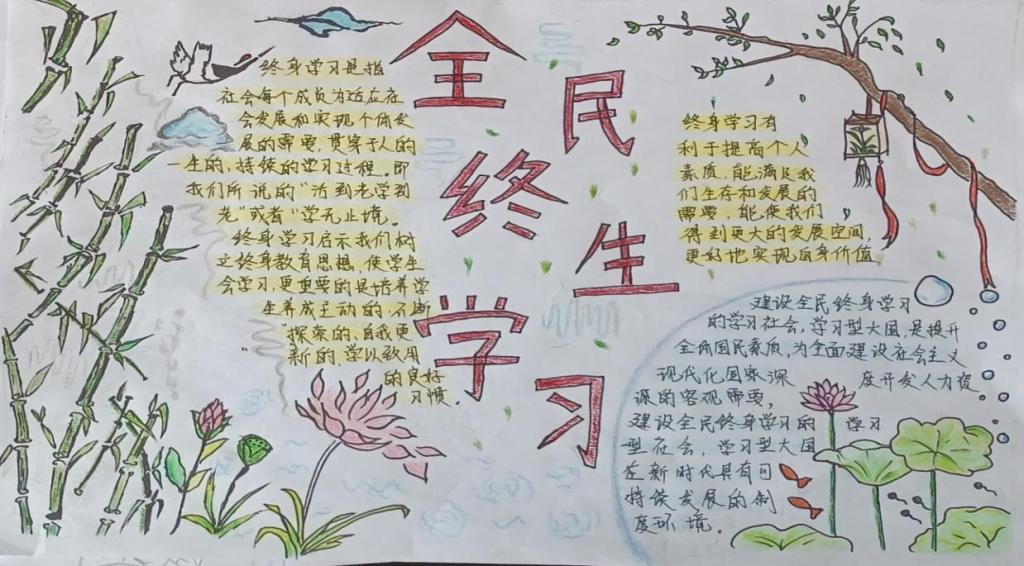 全民终生学习
终身学习是指
社会每个成员为适应社
会发展和实现个体发
展的需要,贯穿于人的
一生的,持续的学习过程。即
我们所说的“活到老学到
老”或者“学无止境。
终身学习启示我们树
立终身教育思想,使学生
会学习,更重要的是培养学
生养成主动的、不断
“探索的、自我更
新的、学以致用
的良好
习惯。
终身学习有
利于提高个人
素质,能满足我
们生存和发展的
需要,能使我们
得到更大的发展空间,
更好地实现自身价值
建设全民终身学习
的学习社会,学习型大国,是提升
全体国民素质,为全面建设社会主义
现代化国家深度开发人力资
源的客观需要,
建设全民终身学习的学习
型社会,学习型大国
在新时代具有可
持续发展的制
度环境。